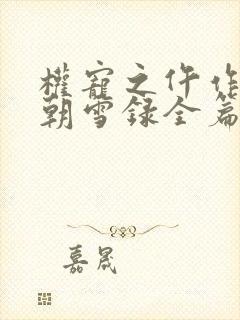 權寵之仵作
朝雪錄全篇
嘉晟